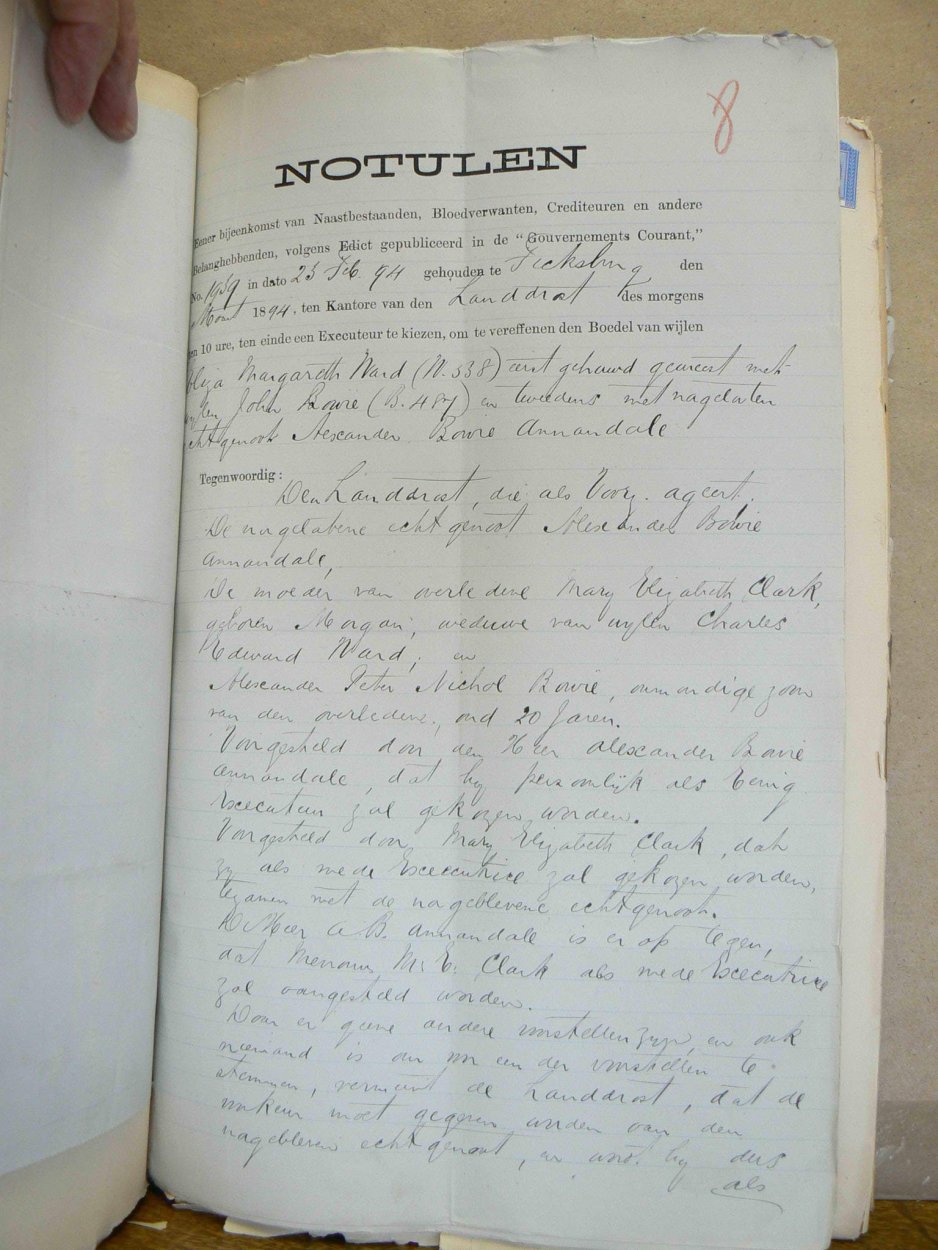 8
NOTULEN
Eener bijeenkomst van Naastbestaanden, Bloedverwanten, Crediteuren en andere
Belanghebbenden, volgens Edict gepubliceerd in de "Gouvernements Courant,"
No. 1959 in dato 23 Feb. 94 gehouden te Ficksburg den
Maart 1894, ten Kantore van den Landdrost des morgens
ten 10 ure, ten einde een Executeur te kiezen, om te vereffenen den Boedel van wijlen
Eliza Margareth Ward (W. 338) eerst gehuwd geweest met
wylen John Bowie (B. 487) en tweedens met nagelaten
echtgenoot Alexander Bowie Annandale
Tegenwoordig:
Den Landdrost, die als Voorz. ageert.
De nagelatene echtgenoot Alexander Bowie
Annandale,
De moeder van overledene Mary Elizabeth Clark,
geboren Morgan, weduwe van wylen Charles
Edward Ward; en
Alexander Peter Nichol Bowie, onmondige zoon
van den overledene, oud 20 Jaren.
Voorgesteld door den Heer Alexander Bowie
Annandale, dat hy persoonlijk als Eenig
Executeur zal gekozen worden.
Voorgesteld door Mary Elizabeth Clark, dat
zy als mede Executrice zal gekozen worden,
tezamen met de nageblevene echtgenoot.
De Heer A. B. Annandale is er op tegen,
dat Mevrouw M. E. Clark als mede Executrice
zal aangesteld worden.
Daar er geene andere voorstellen zyn, en ook
niemand is om voor een der voorstellen te
stemmen, vermeent de Landdrost, dat de
voorkeur moet gegeven worden aan den
nagebleven echtgenoot, en word hy dus
als